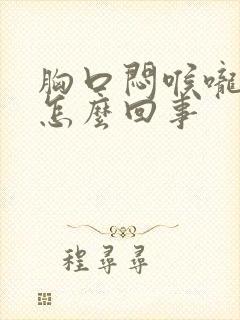 胸口悶喉嚨
怎麼回事
程尋尋